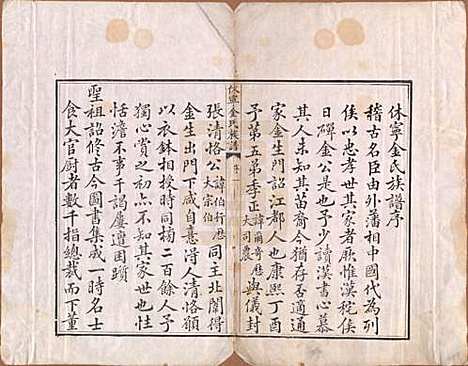 休寧金氏族譜序
稽古名臣由外藩相中國代為列
侯以忠孝世其家者厥惟漢秺侯
日磾金公是也予少讀漢書心慕
其人未知其苗裔今猶存否適通
家金生門詔江都人也康熙丁酉
予第五弟季正諱爾奇歷大司農與儀封
休寧金氏族譜
序
張清恪公諱伯行歷大宗伯同主北闈得
金生出門下咸自憙得人清恪額
以衣鉢相授時同楠二百餘人予
獨心賞之初亦不知其家世也性
恬澹不事干謁屢遭困躓
聖祖詔修古今圖書集成一時名士
食大官廚者數千指總裁而下董